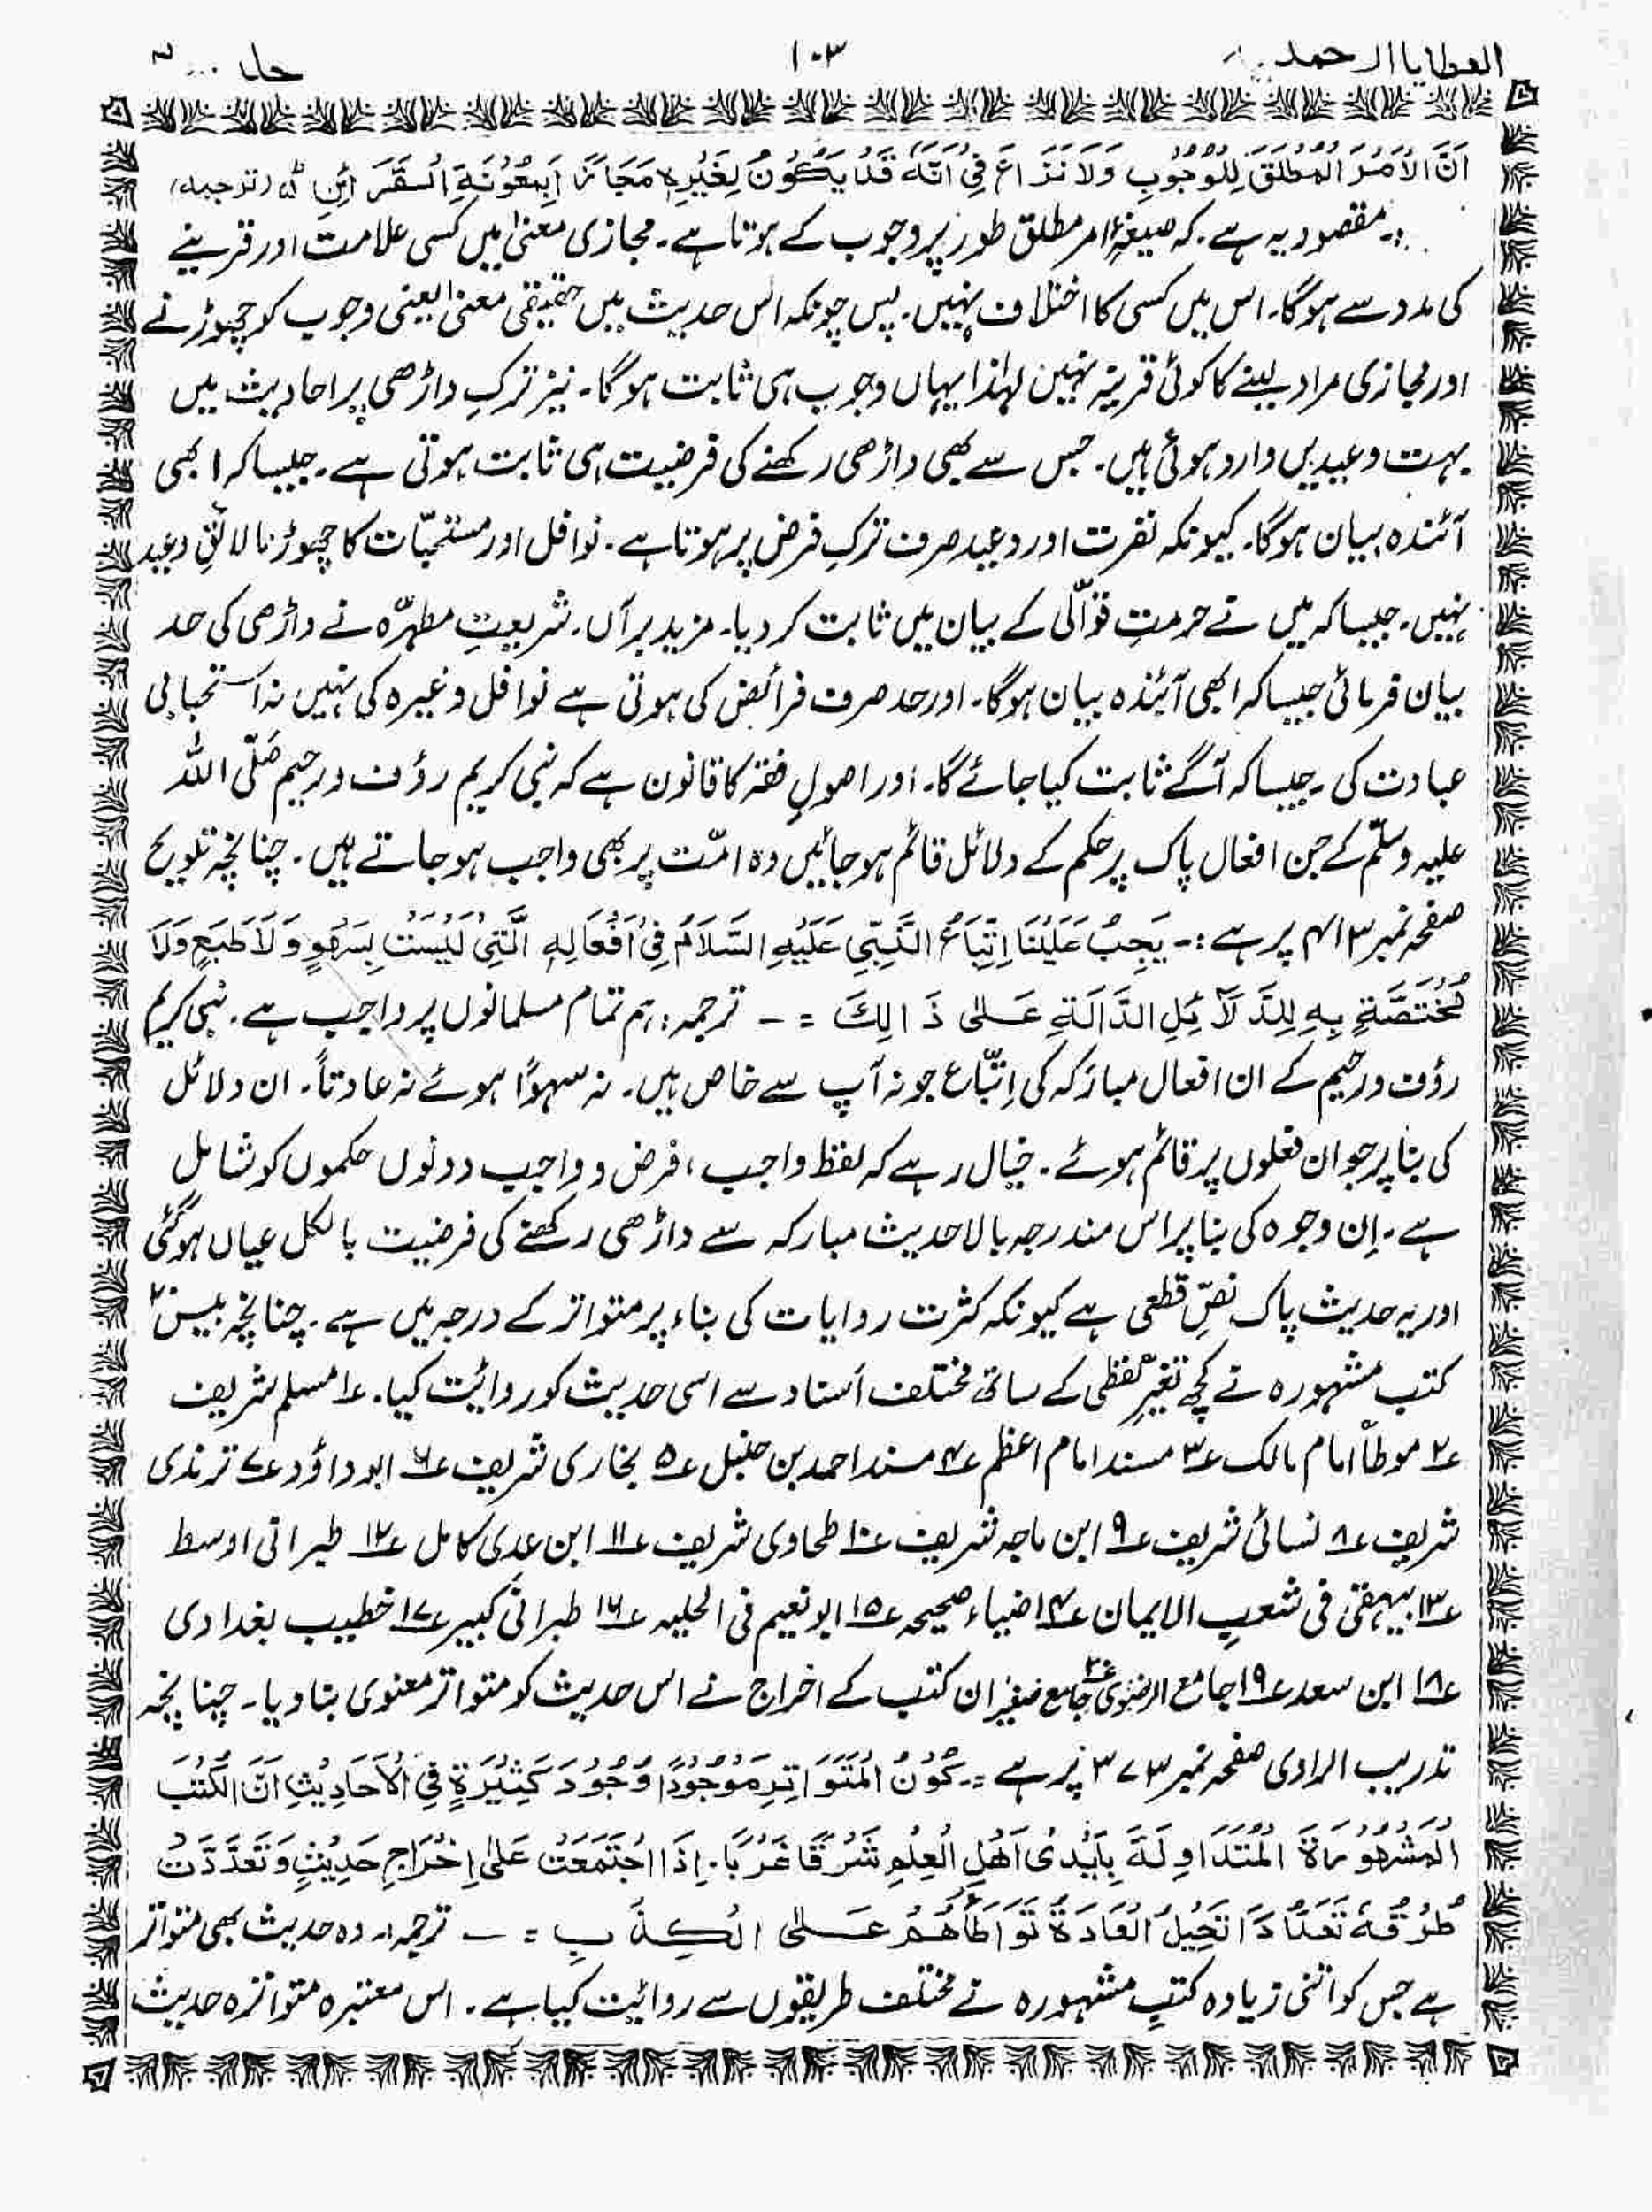 العطایا الاحمدیہ ۱۰۳ جلد
اَنَّ الْاَمْرَ الْمُطْلَقَ لِلْوُجُوْبِ وَلَا نِزَاعَ فِیْ اَنَّہٗ قَدْ یَکُوْنُ لِغَیْرِہٖ مَجَازًا بِمَعُوْنَۃِ الْقَرَائِنِ (ترجمہ)
:۔ مقصود یہ ہے۔ کہ صیغۂ امر مطلق طور پر وجوب کے ہوتا ہے۔ مجازی معنیٰ میں کسی علامت اور قرینے
کی مدد سے ہوگا۔ اس میں کسی کا اختلاف نہیں۔ پس چونکہ اس حدیث میں حقیقی معنیٰ یعنی وجوب کو چھوڑنے
اور مجازی مراد لینے کا کوئی قرینہ نہیں لہٰذا یہاں وجوب ہی ثابت ہوگا۔ نیز ترکِ داڑھی پر احادیث میں
بہت وعیدیں وارد ہوئی ہیں۔ جس سے بھی داڑھی رکھنے کی فرضیت ہی ثابت ہوتی ہے۔ جیسا کہ ابھی
آئندہ بیان ہوگا۔ کیونکہ نفرت اور وعید صرف ترکِ فرض پر ہوتا ہے۔ نوافل اور مستحبّات کا چھوڑنا لائقِ وعید
نہیں۔ جیسا کہ میں نے حرمتِ قوّالی کے بیان میں ثابت کر دیا۔ مزید برآں۔ شریعتِ مطہرّہ نے داڑھی کی حد
بیان فرمائی جیسا کہ ابھی آئندہ بیان ہوگا۔ اور حد صرف فرائض کی ہوتی ہے نوافل وغیرہ کی نہیں نہ استحبابی
عبادت کی۔ جیسا کہ آگے ثابت کیا جائے گا۔ اور اصولِ فقہ کا قانون ہے کہ نبی کریم رؤف ورحیم صَلّی اللہ
علیہ وسلّم کے جن افعال پاک پر حکم کے دلائل قائم ہو جائیں وہ امّت پر بھی واجب ہو جاتے ہیں۔ چنانچہ تلویح
صفحہ نمبر ۴۱۳ پر ہے :۔ یَجِبُ عَلَیْنَا اِتِّبَاعُ النَّبِیِّ عَلَیْہِ السَّلَامُ فِیْ اَفْعَالِہٖ الَّتِیْ لَیْسَتْ بِسَہْوٍ وَلَا طَبْعٍ وَلَا
مُخْتَصَّۃٍ بِہٖ لِلدَّلَائِلِ الدَّالَۃِ عَلٰی ذَالِکَ = ۔ ترجمہ :ہم تمام مسلمانوں پر واجب ہے۔ نبی کریم
رؤف ورحیم کے ان افعال مبارکہ کی اِتّباع جو نہ آپ سے خاص ہیں۔ نہ سہوًا ہوئے نہ عادتاً۔ ان دلائل
کی بنا پر جو ان فعلوں پر قائم ہوئے۔ خیال رہے کہ لفظ واجب، فرض و واجب دونوں حکموں کو شامل
ہے۔ اِن وجوہ کی بنا پر اس مندرجہ بالا حدیث مبارکہ سے داڑھی رکھنے کی فرضیت بالکل عیاں ہوگئی
اور یہ حدیث پاک نصِّ قطعی ہے کیونکہ کثرت روایات کی بناء پر متواتر کے درجہ میں ہے۔ چنانچہ بیس ۲۰
کتب مشہورہ نے کچھ تغیّرِ لفظی کے ساتھ مختلف اَسناد سے اسی حدیث کو روائیت کیا۔ ۱؎ مسلم شریف
۲؎ موطاّ امام مالک ۳؎ مسند امام اعظم ۴؎ مسند احمد بن حنبل ۵؎ بخاری شریف ۶؎ ابو داؤد ۷؎ ترمذی
شریف ۸؎ نسائی شریف ۹؎ ابن ماجہ شریف ۱۰؎ طحاوی شریف ۱۱؎ ابن عدی کامل ۱۲؎ طبرانی اوسط
۱۳؎ بیہقی فی شعبِ الایمان ۱۴؎ ضیاء صحیحہ ۱۵؎ ابو نعیم فی الحلیہ ۱۶؎ طبرانی کبیر ۱۷؎ خطیب بغدادی
۱۸؎ ابن سعد ۱۹؎ جامع الرضوی ۲۰؎ جامع صغیر ان کتب کے اخراج نے اس حدیث کو متواتر معنوی بنا دیا۔ چنانچہ
تدریب الراوی صفحہ نمبر ۳۷۳ پر ہے :۔ کَوْنُ الْمُتَوَاتِرِ مَوْجُوْدًا وُجُوْدَ کَثِیْرَۃٍ فِی الْاَحَادِیْثِ اَنَّ الْکُتُبَ
الْمَشْہُوْرَۃَ الْمُتَدَاوِلَۃَ بِاَیْدِیْ اَھْلِ الْعِلْمِ شَرْقًا غَرْبًا۔ اِذَا اجْتَمَعَتْ عَلٰی اِخْرَاجِ حَدِیْثٍ وَتَعَدَّدَتْ
طُرُقُہٗ تَعَدُّدًا تَحِیْلُ الْعَادَۃُ تَوَاطُأَھُمْ عَلٰی الْکِذْبِ = ۔ ترجمہ :۔ وہ حدیث بھی متواتر
ہے جس کو اتنی زیادہ کتبِ مشہورہ نے مختلف طریقوں سے روائیت کیا ہے۔ اس معتبرہ متواترہ حدیث